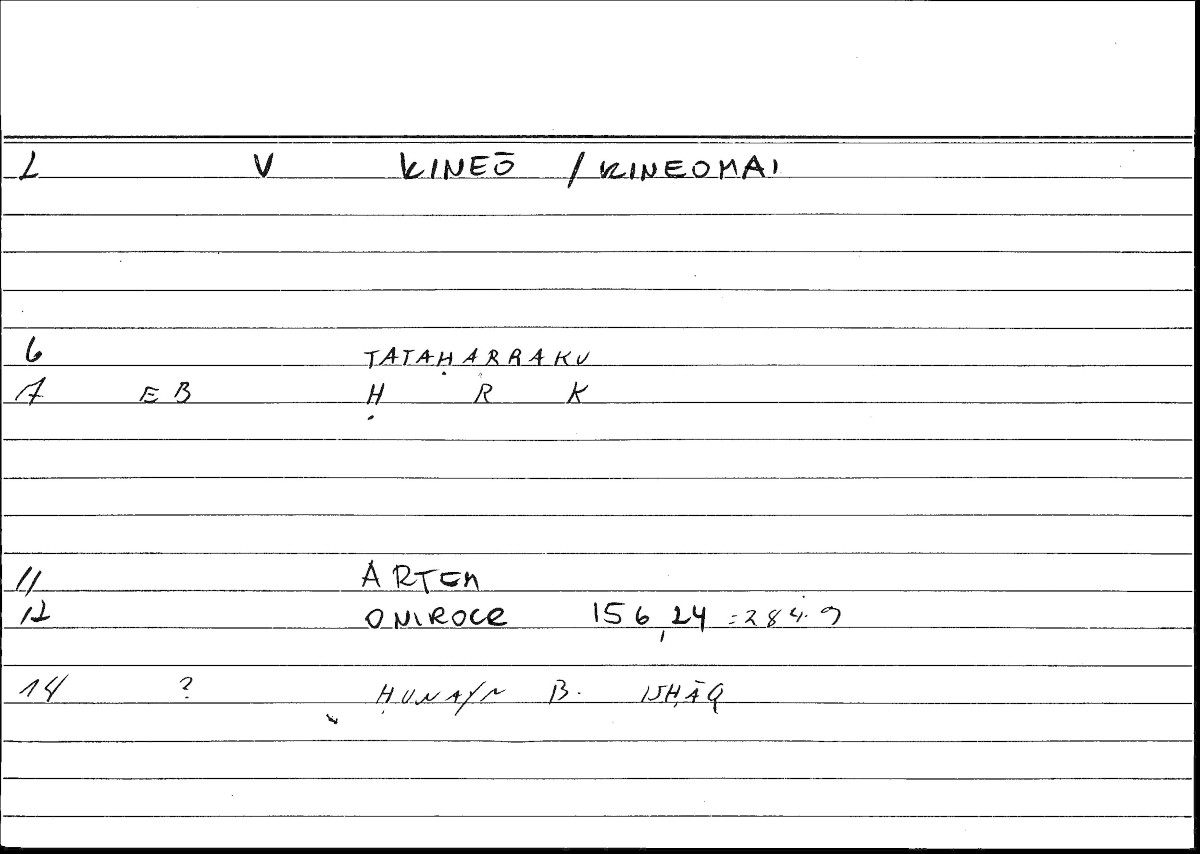 1 V KINEŌ / KINEOMAI
6 TATAḤARRAKU
7 EB Ḥ R K
11 ARTEM
12 ONIROCR 156,24 = 284.9
14 ? ḤUNAYN B. ISḤĀQ